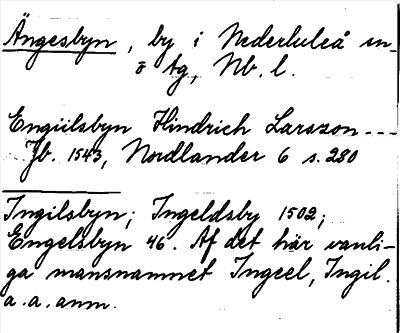 Ängesbyn, by i Nederluleå sn
o tg, Nb. l.
Engiilsbyn Hindrich Larszon ---
Jb. 1543, Nordlander 6 s. 280
Ingilsbyn; Ingeldsby 1502;
Engelsbyn 46. Af det här vanli-
ga mansnamnet Ingeel, Ingil.
a. a. anm.